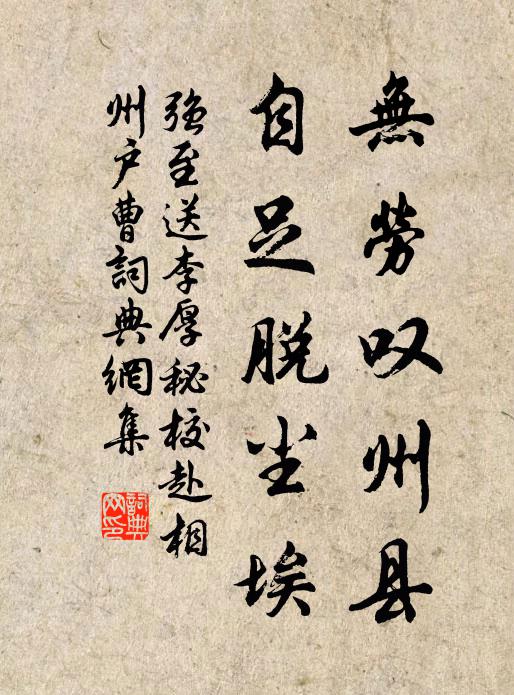 無勞叹州县
自足脱尘埃
强至送李厚秘校赴相
州户曹詞典網集
詞典
网印